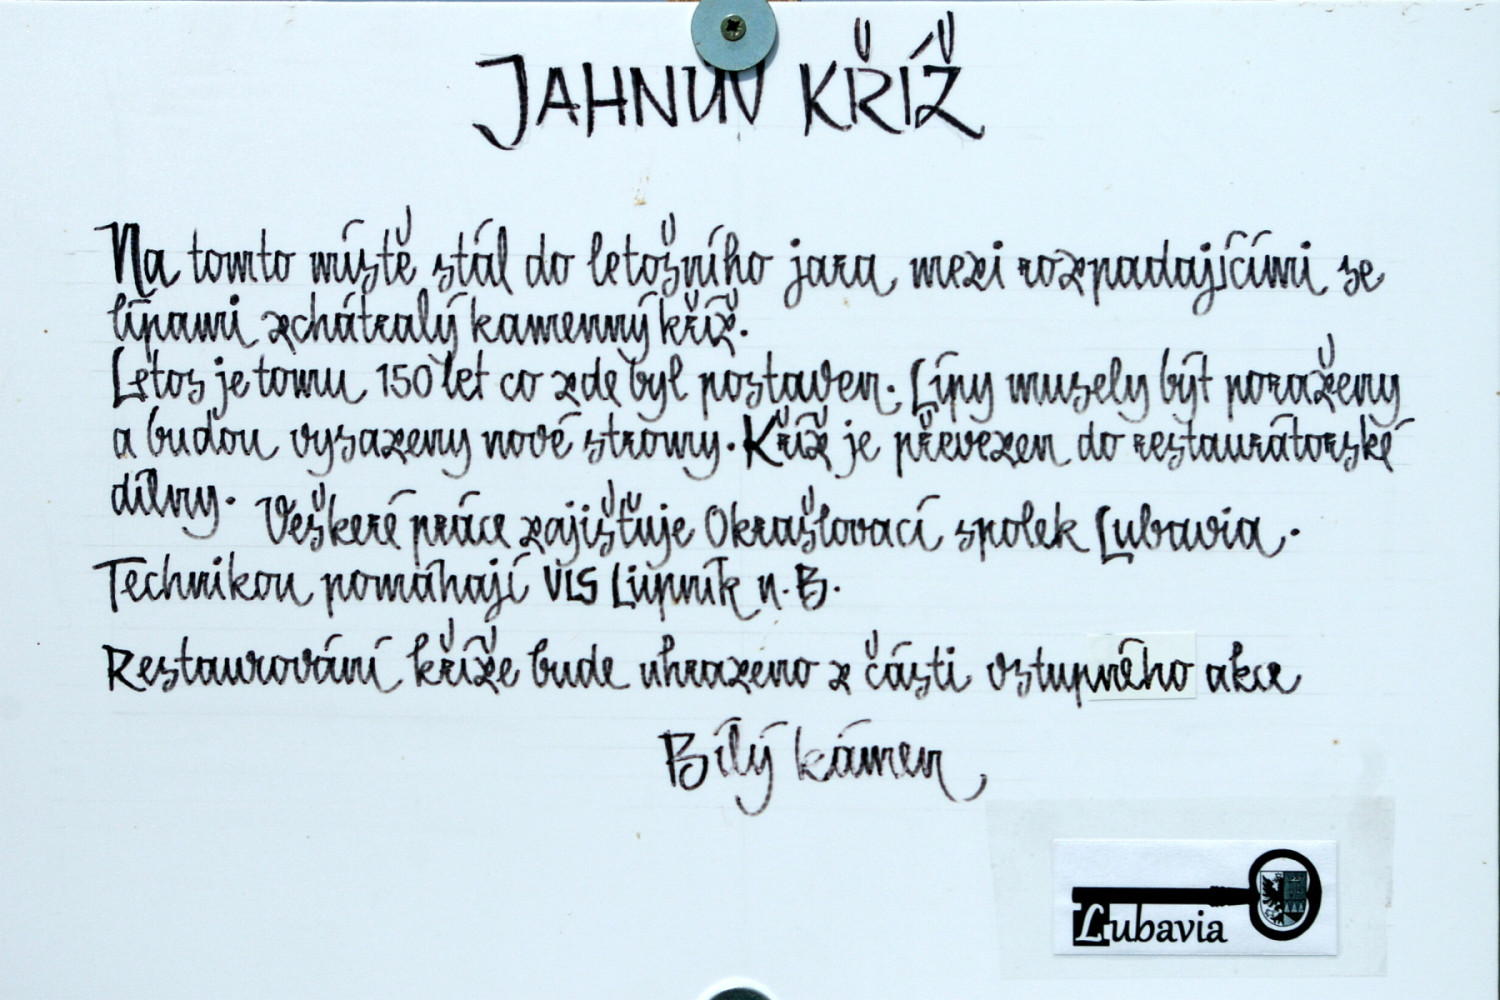 JAHNŮV KŘÍŽ
Na tomto místě stál do letošního jara mezi rozpadajícími se
lípami zchátralý kamenný kříž.
Letos je tomu 150 let co zde byl postaven. Lípy musely být poraženy
a budou vysazeny nové stromy. Kříž je převezen do restaurátorské
dílny. Veškeré práce zajišťuje Okrašlovací spolek Lubavia.
Technikou pomáhají VLS Lipník n. B.
Restaurování kříže bude uhrazeno z části vstupného akce
Bílý kámen
Lubavia